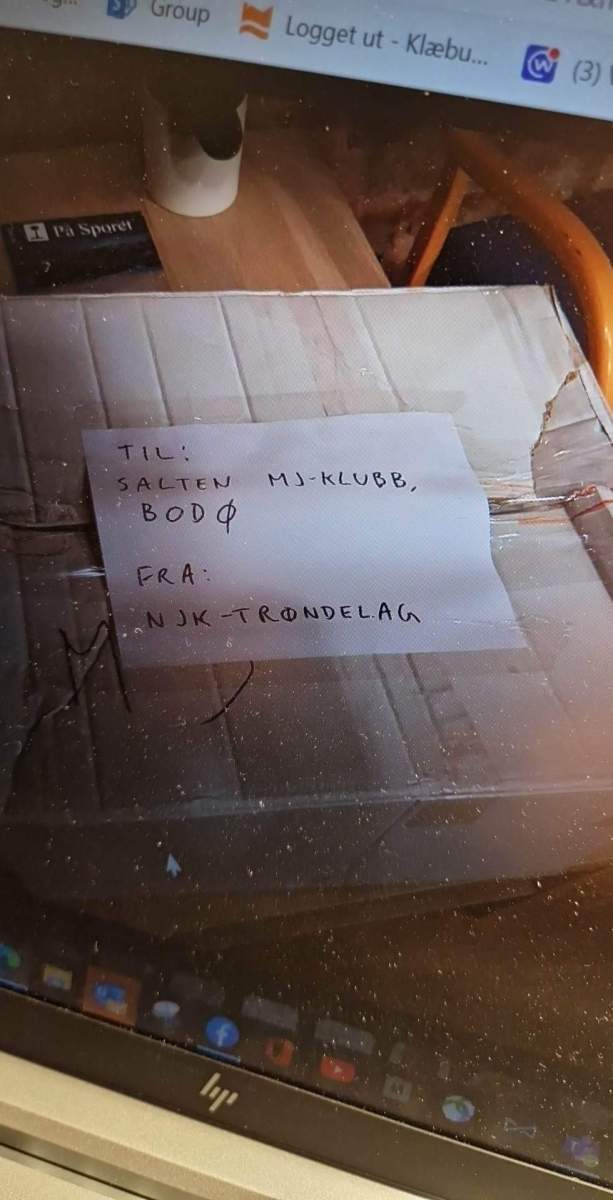 Group
Logget ut - Klæbu...
(3)
På Sporet
TIL:
SALTEN MJ-KLUBB,
BODØ
FRA:
NJK-TRØNDELAG
MJ
hp